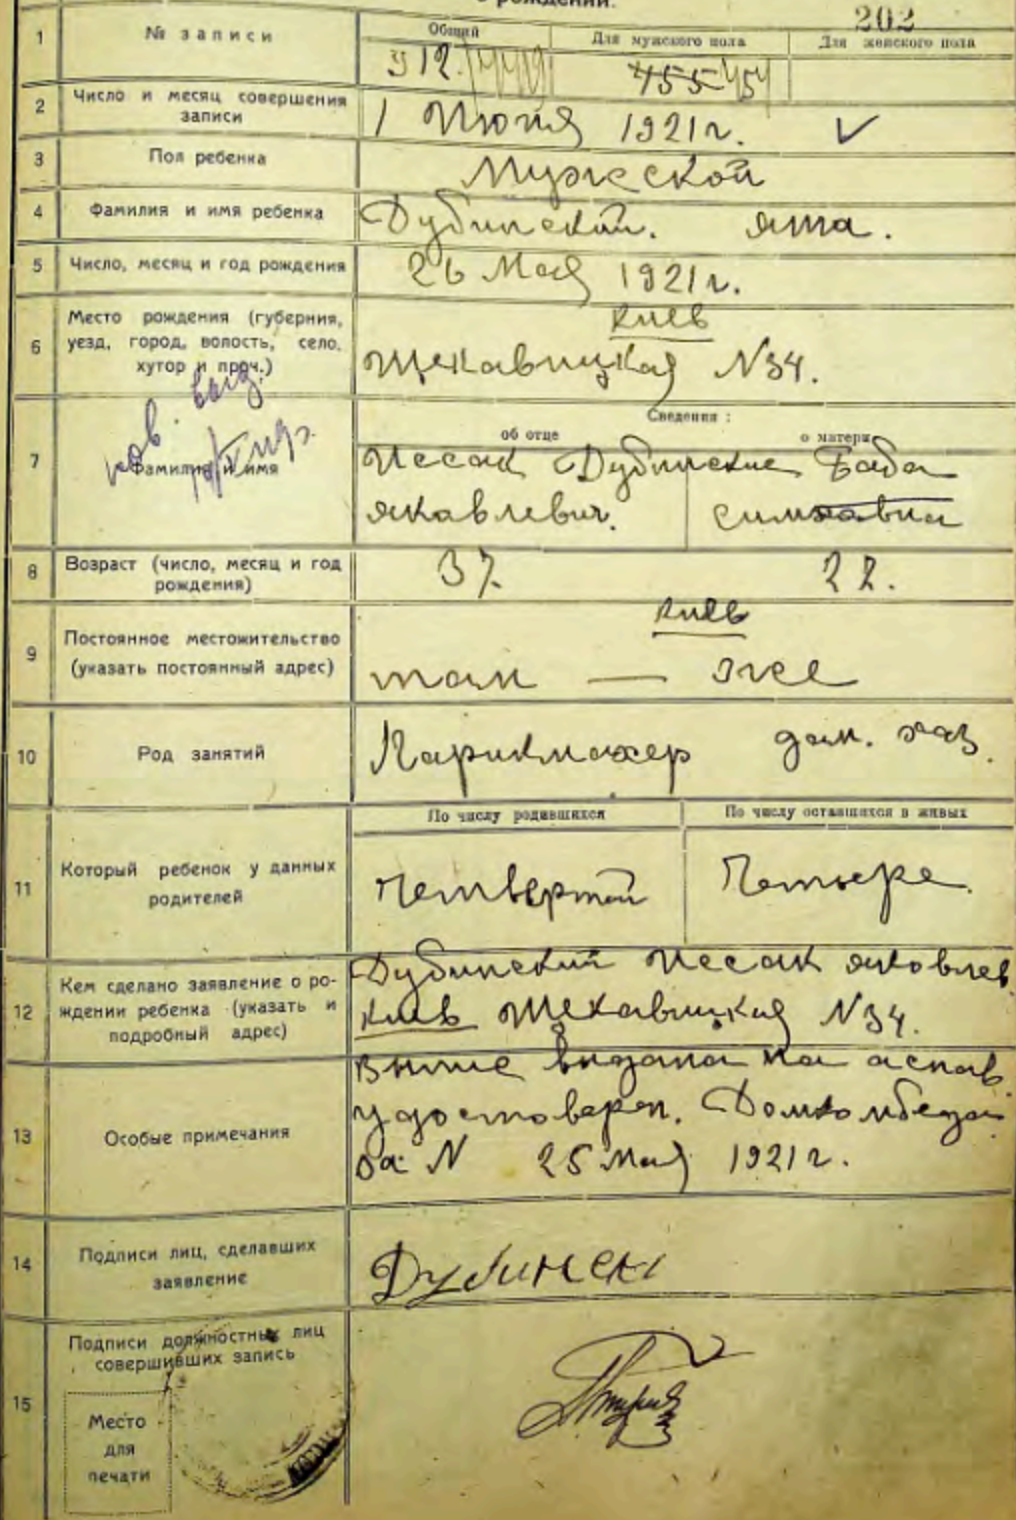 о рождении.
202
1 № записи Общий Для мужского пола Для женского пола
912.
2 Число и месяц совершения
записи
1 Июня 1921 г. ✓
3 Пол ребенка Мужской
4 Фамилия и имя ребенка Дубинский.
5 Число, месяц и год рождения 26 Мая 1921 г.
6 Место рождения (губерния,
уезд, город, волость, село,
хутор и проч.)
Киев
Щекавицкая N34.
Сведения:
об отце о матери
7 Фамилия и имя
Иссак Дубинские Баба
Яковлевич. Симховна
8 Возраст (число, месяц и год
рождения)
37. 22.
9 Постоянное местожительство
(указать постоянный адрес)
Киев
там — же
10 Род занятий Парикмахер дом. хоз.
11 Который ребенок у данных
родителей
По числу родившихся По числу оставшихся в живых
Четвертый Четыре.
12 Кем сделано заявление о ро-
ждении ребенка (указать и
подробный адрес)
Дубинский Иссак Яковлев
Киев Щекавицкая N34.
13 Особые примечания
выдана на
удостоверен. Домкомбеда
N 25 Мая 1921 г.
14 Подписи лиц, сделавших
заявление
Дубински
15 Подписи должностных лиц
совершивших запись
Место
для
печати